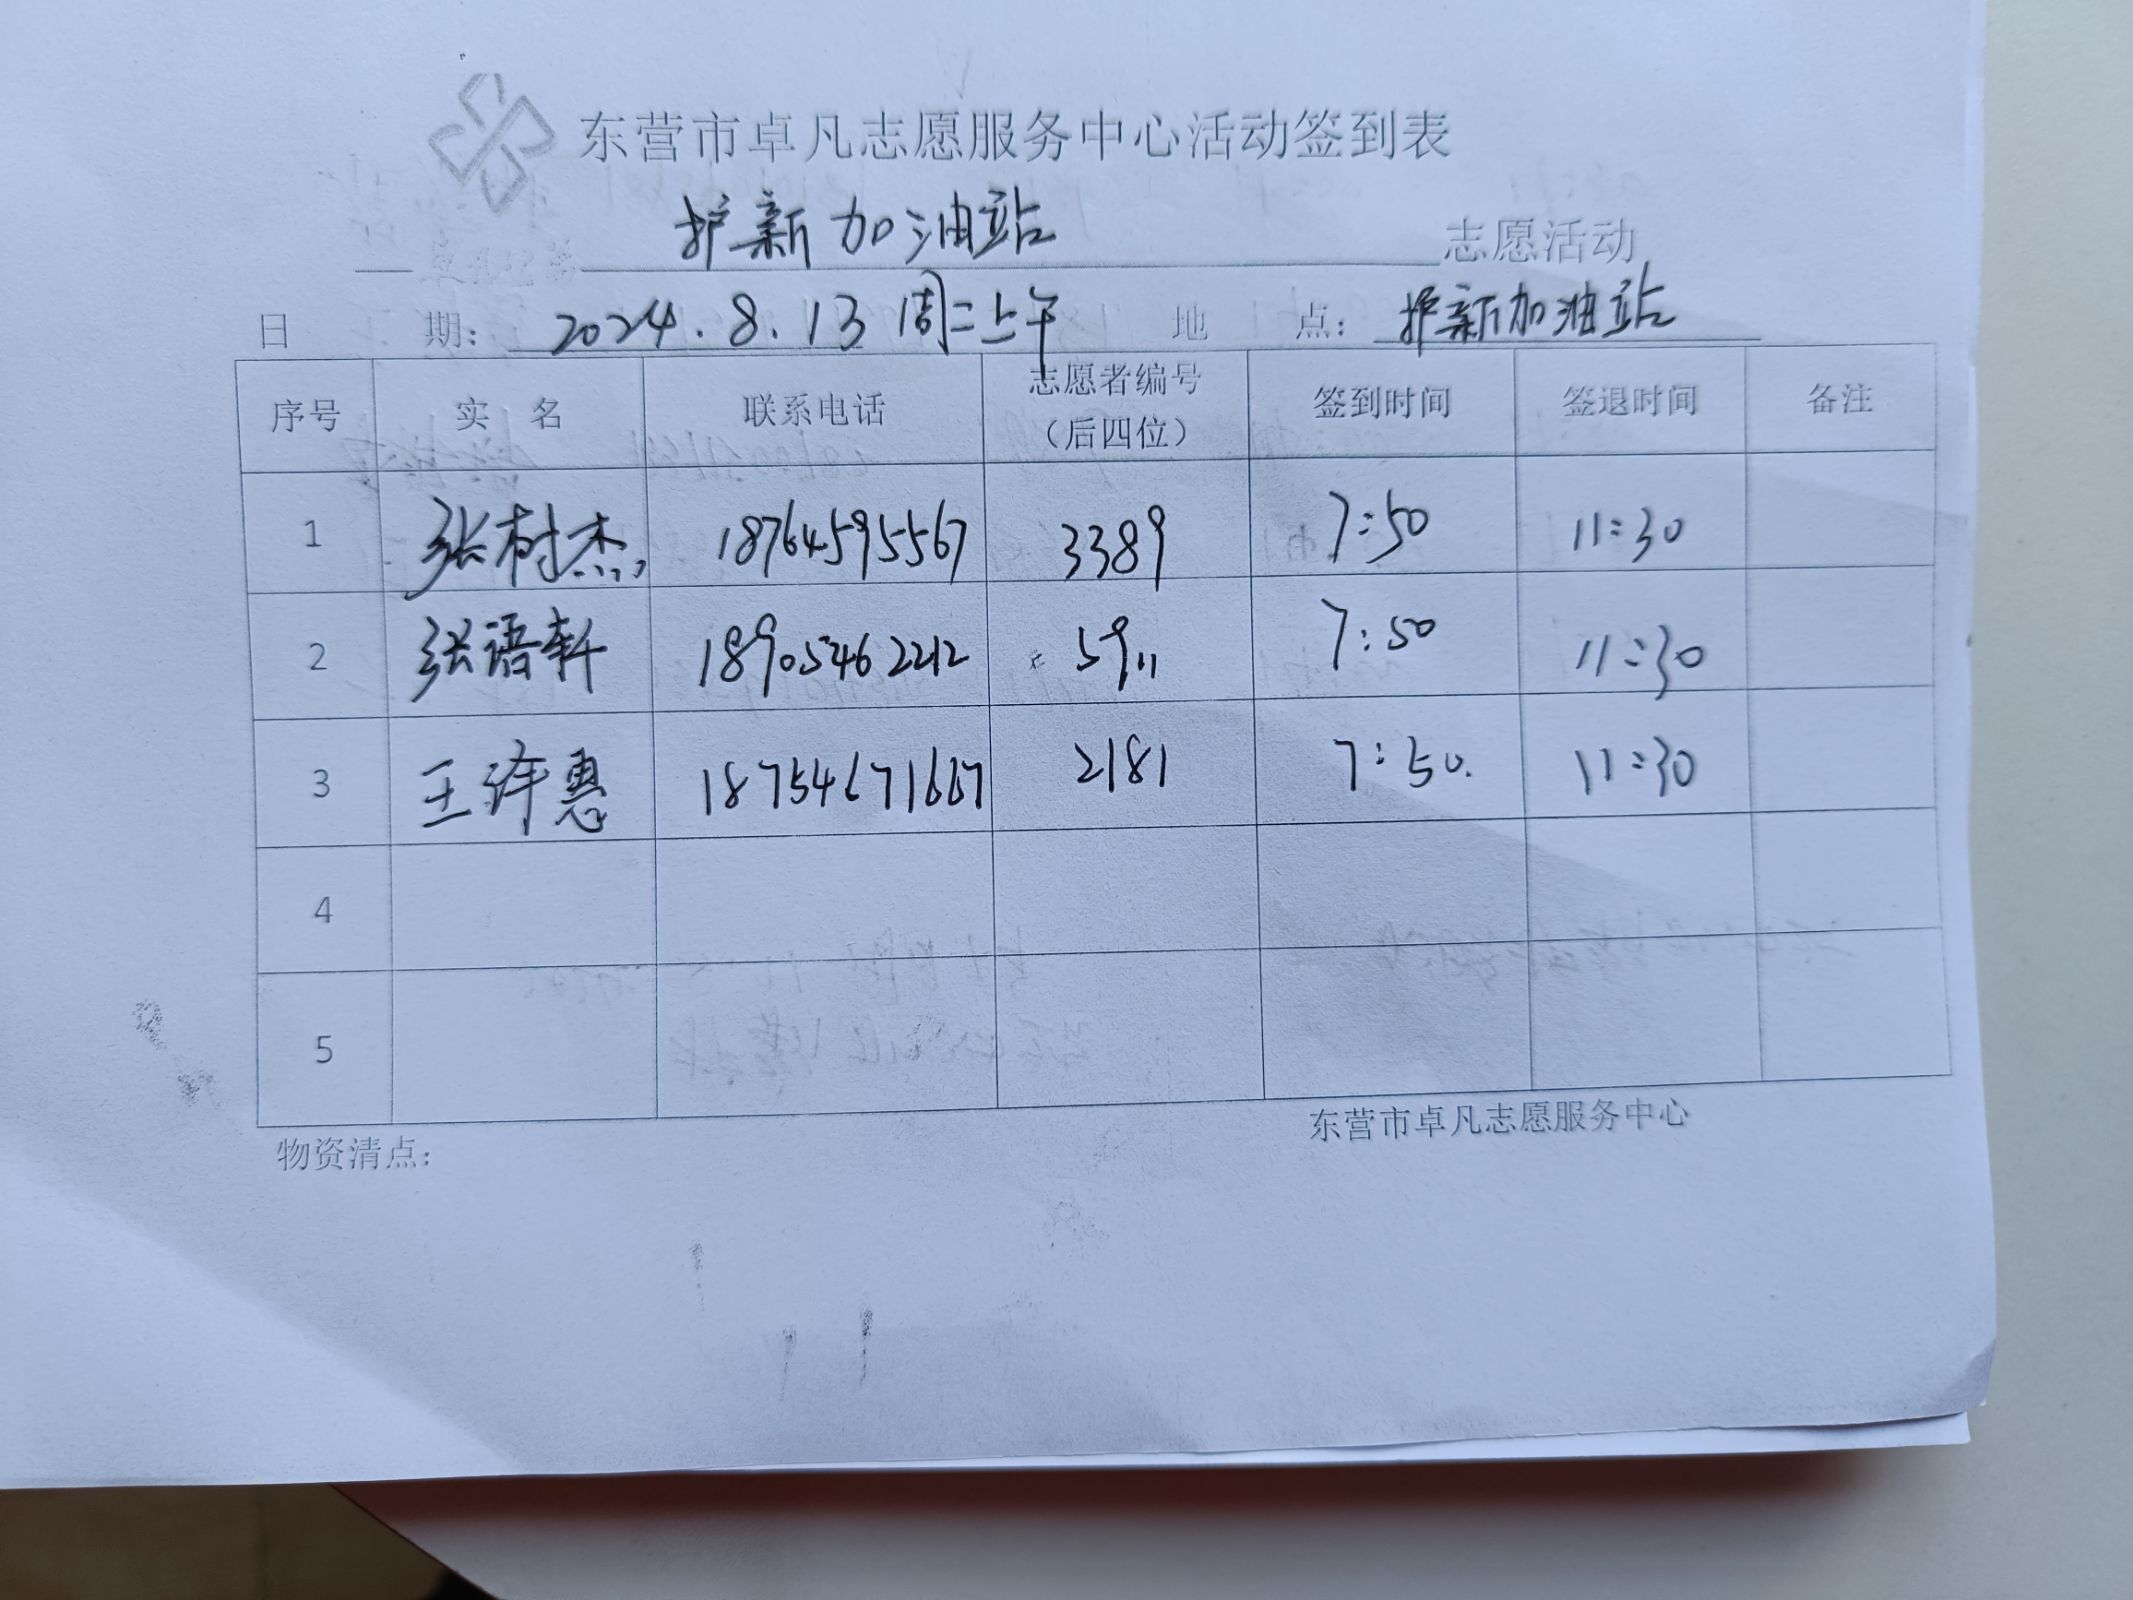 东营市卓凡志愿服务中心活动签到表
护新加油站 志愿活动
日期：2024.8.13 周二上午 地点：护新加油站
序号 实名 联系电话 志愿者编号（后四位） 签到时间 签退时间 备注
1 张树杰 18764595567 3389 7:50 11:30
2 张语轩 18905462212 5911 7:50 11:30
3 王 惠 18754671667 2181 7:50. 11:30
4
5
物资清点： 东营市卓凡志愿服务中心